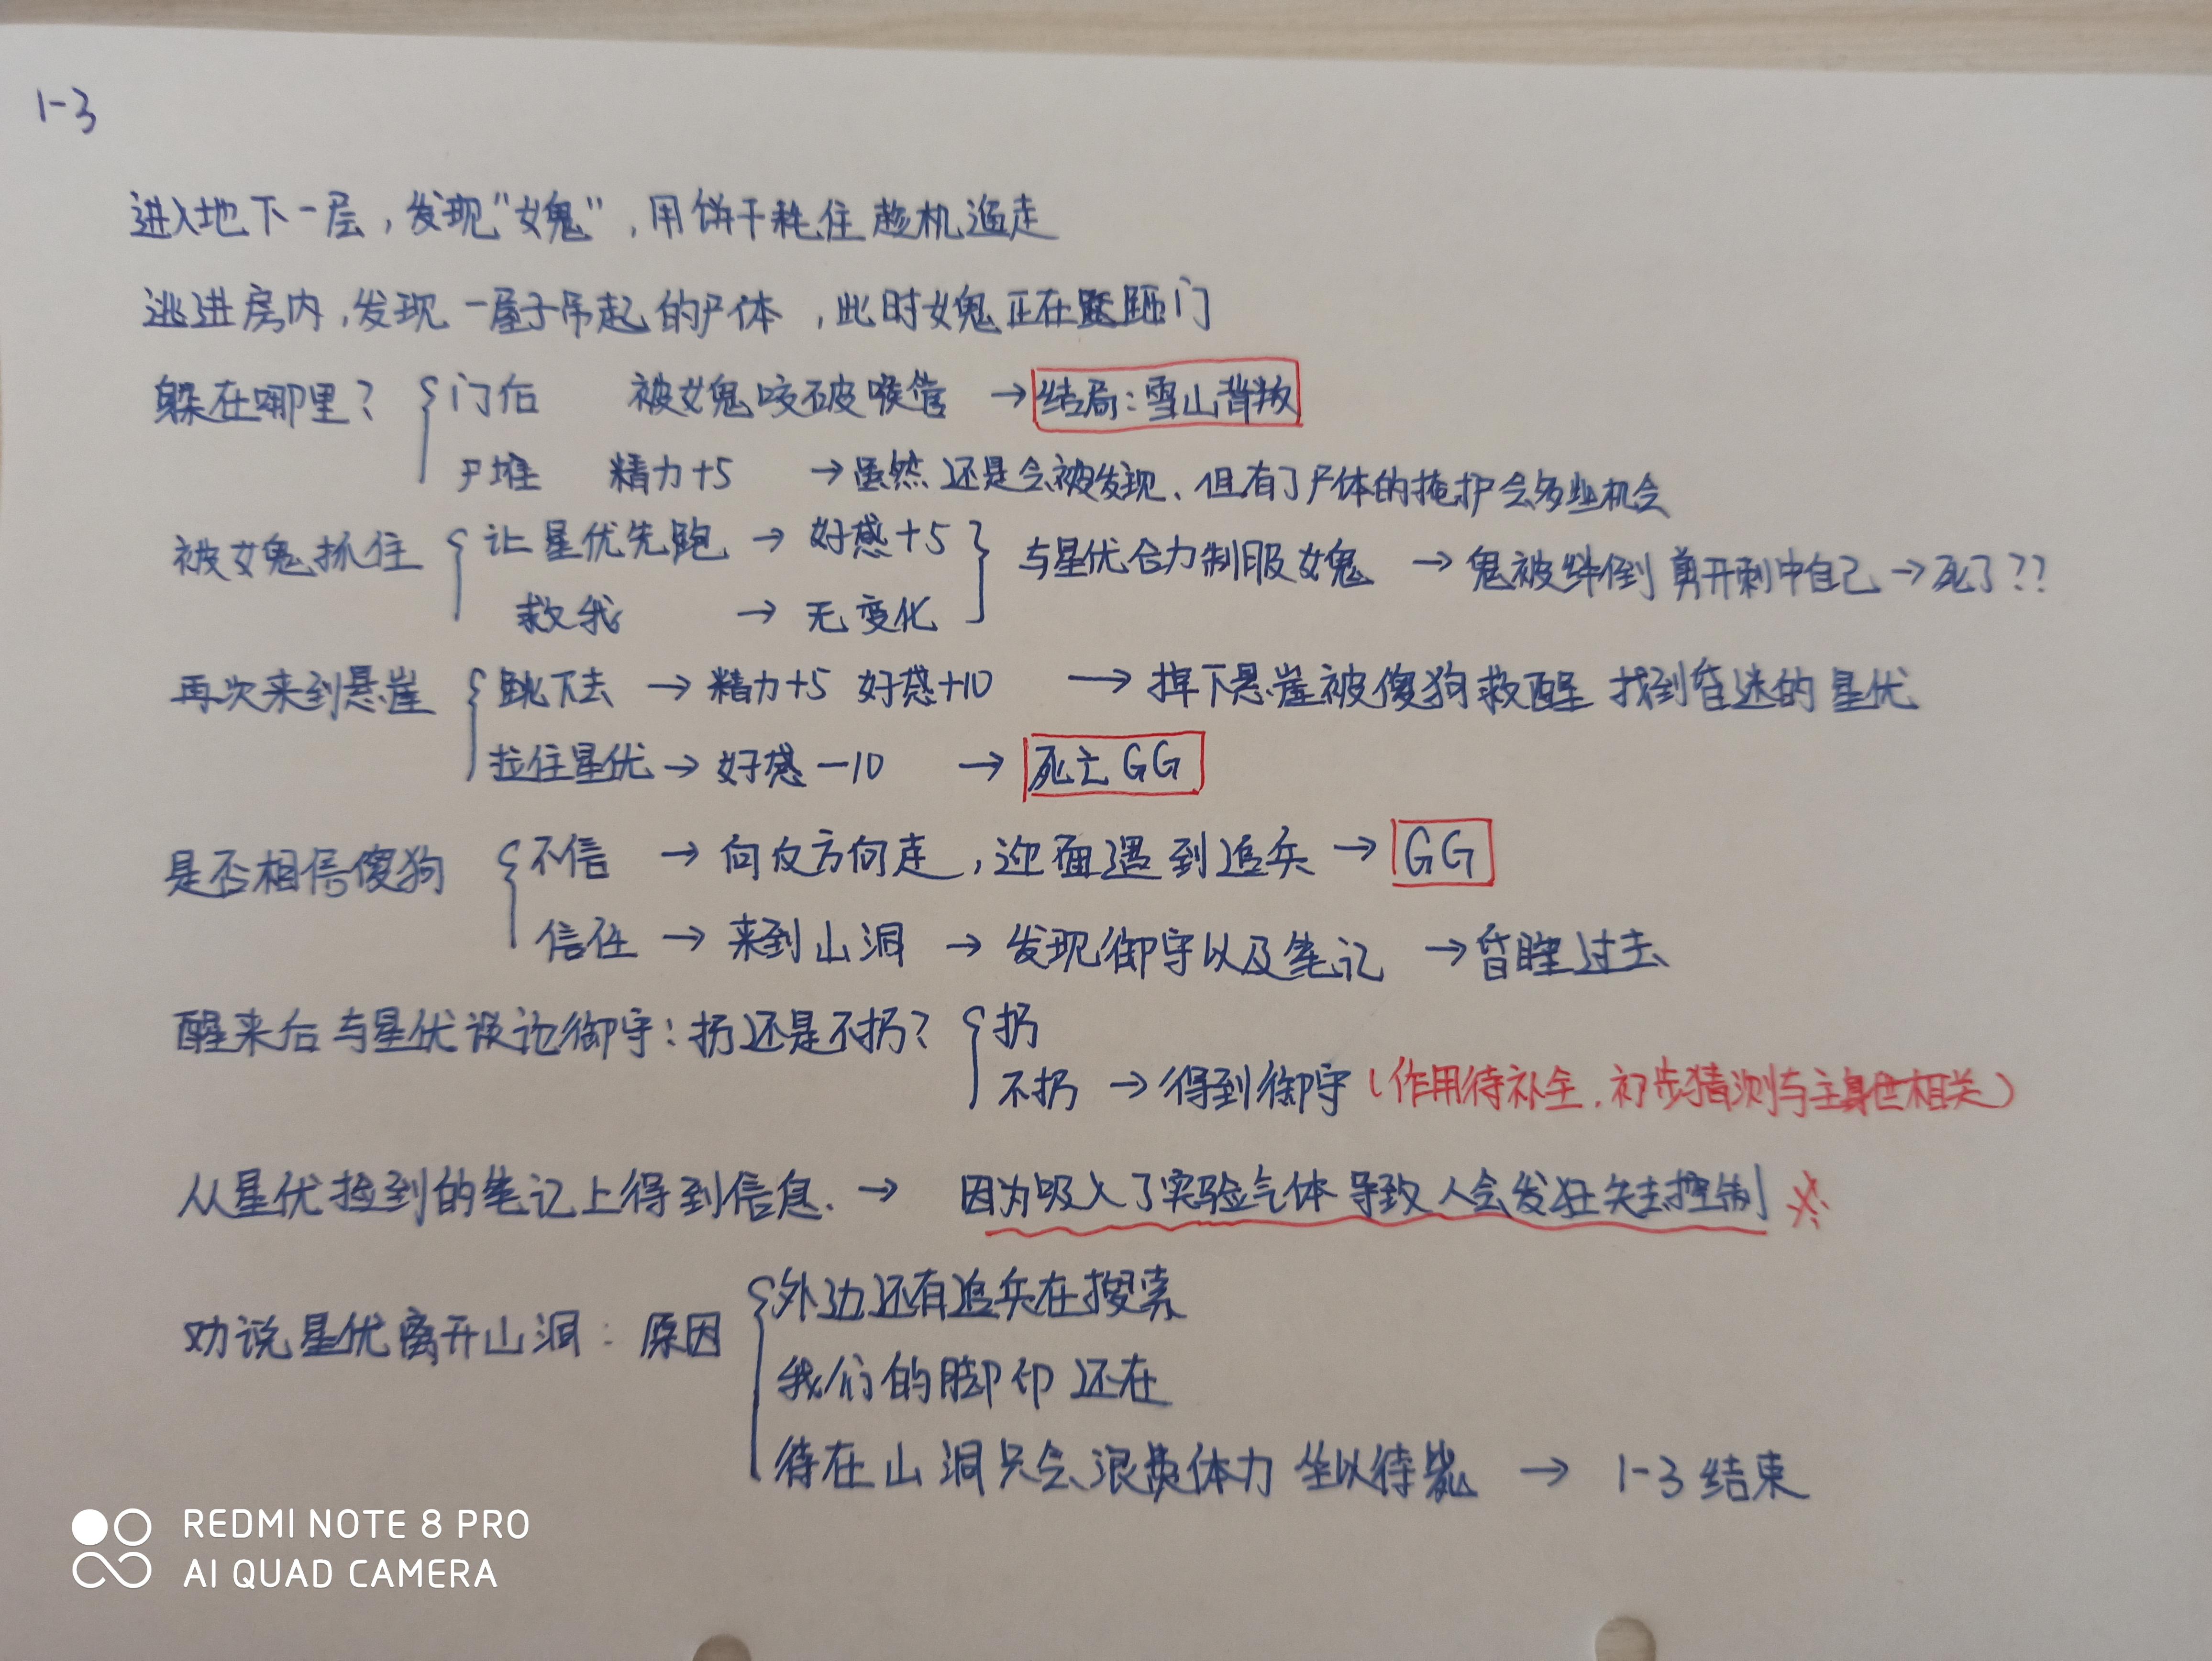 1-3
进入地下一层，发现"女鬼"，用饼干耗住趁机逃走
逃进房内，发现一屋子吊起的尸体，此时女鬼正在踹门
躲在哪里？ { 门后 被女鬼咬破喉管 → 结局：雪山背叛
尸堆 精力+5 → 虽然还是会被发现、但有了尸体的掩护会多些机会
被女鬼抓住 { 让星优先跑 → 好感+5 } 与星优合力制服女鬼 → 鬼被绊倒 剪开刺中自己 → 死了??
救我 → 无变化
再次来到悬崖 { 跳下去 → 精力+5 好感+10 → 掉下悬崖被傻狗救醒 找到昏迷的星优
拉住星优 → 好感-10 → 死亡 GG
是否相信傻狗 { 不信 → 向反方向走，迎面遇到追兵 → GG
信任 → 来到山洞 → 发现御守以及笔记 → 昏睡过去
醒来后与星优谈论御守：扔还是不扔？ { 扔
不扔 → 得到御守 (作用待补全，初步猜测与主身世相关)
从星优捡到的笔记上得到信息. → 因为吸入了实验气体导致人会发狂失去控制 ※
劝说星优离开山洞：原因 { 外边还有追兵在搜索
我们的脚印还在
待在山洞只会浪费体力 坐以待毙 → 1-3 结束
REDMI NOTE 8 PRO
AI QUAD CAMERA